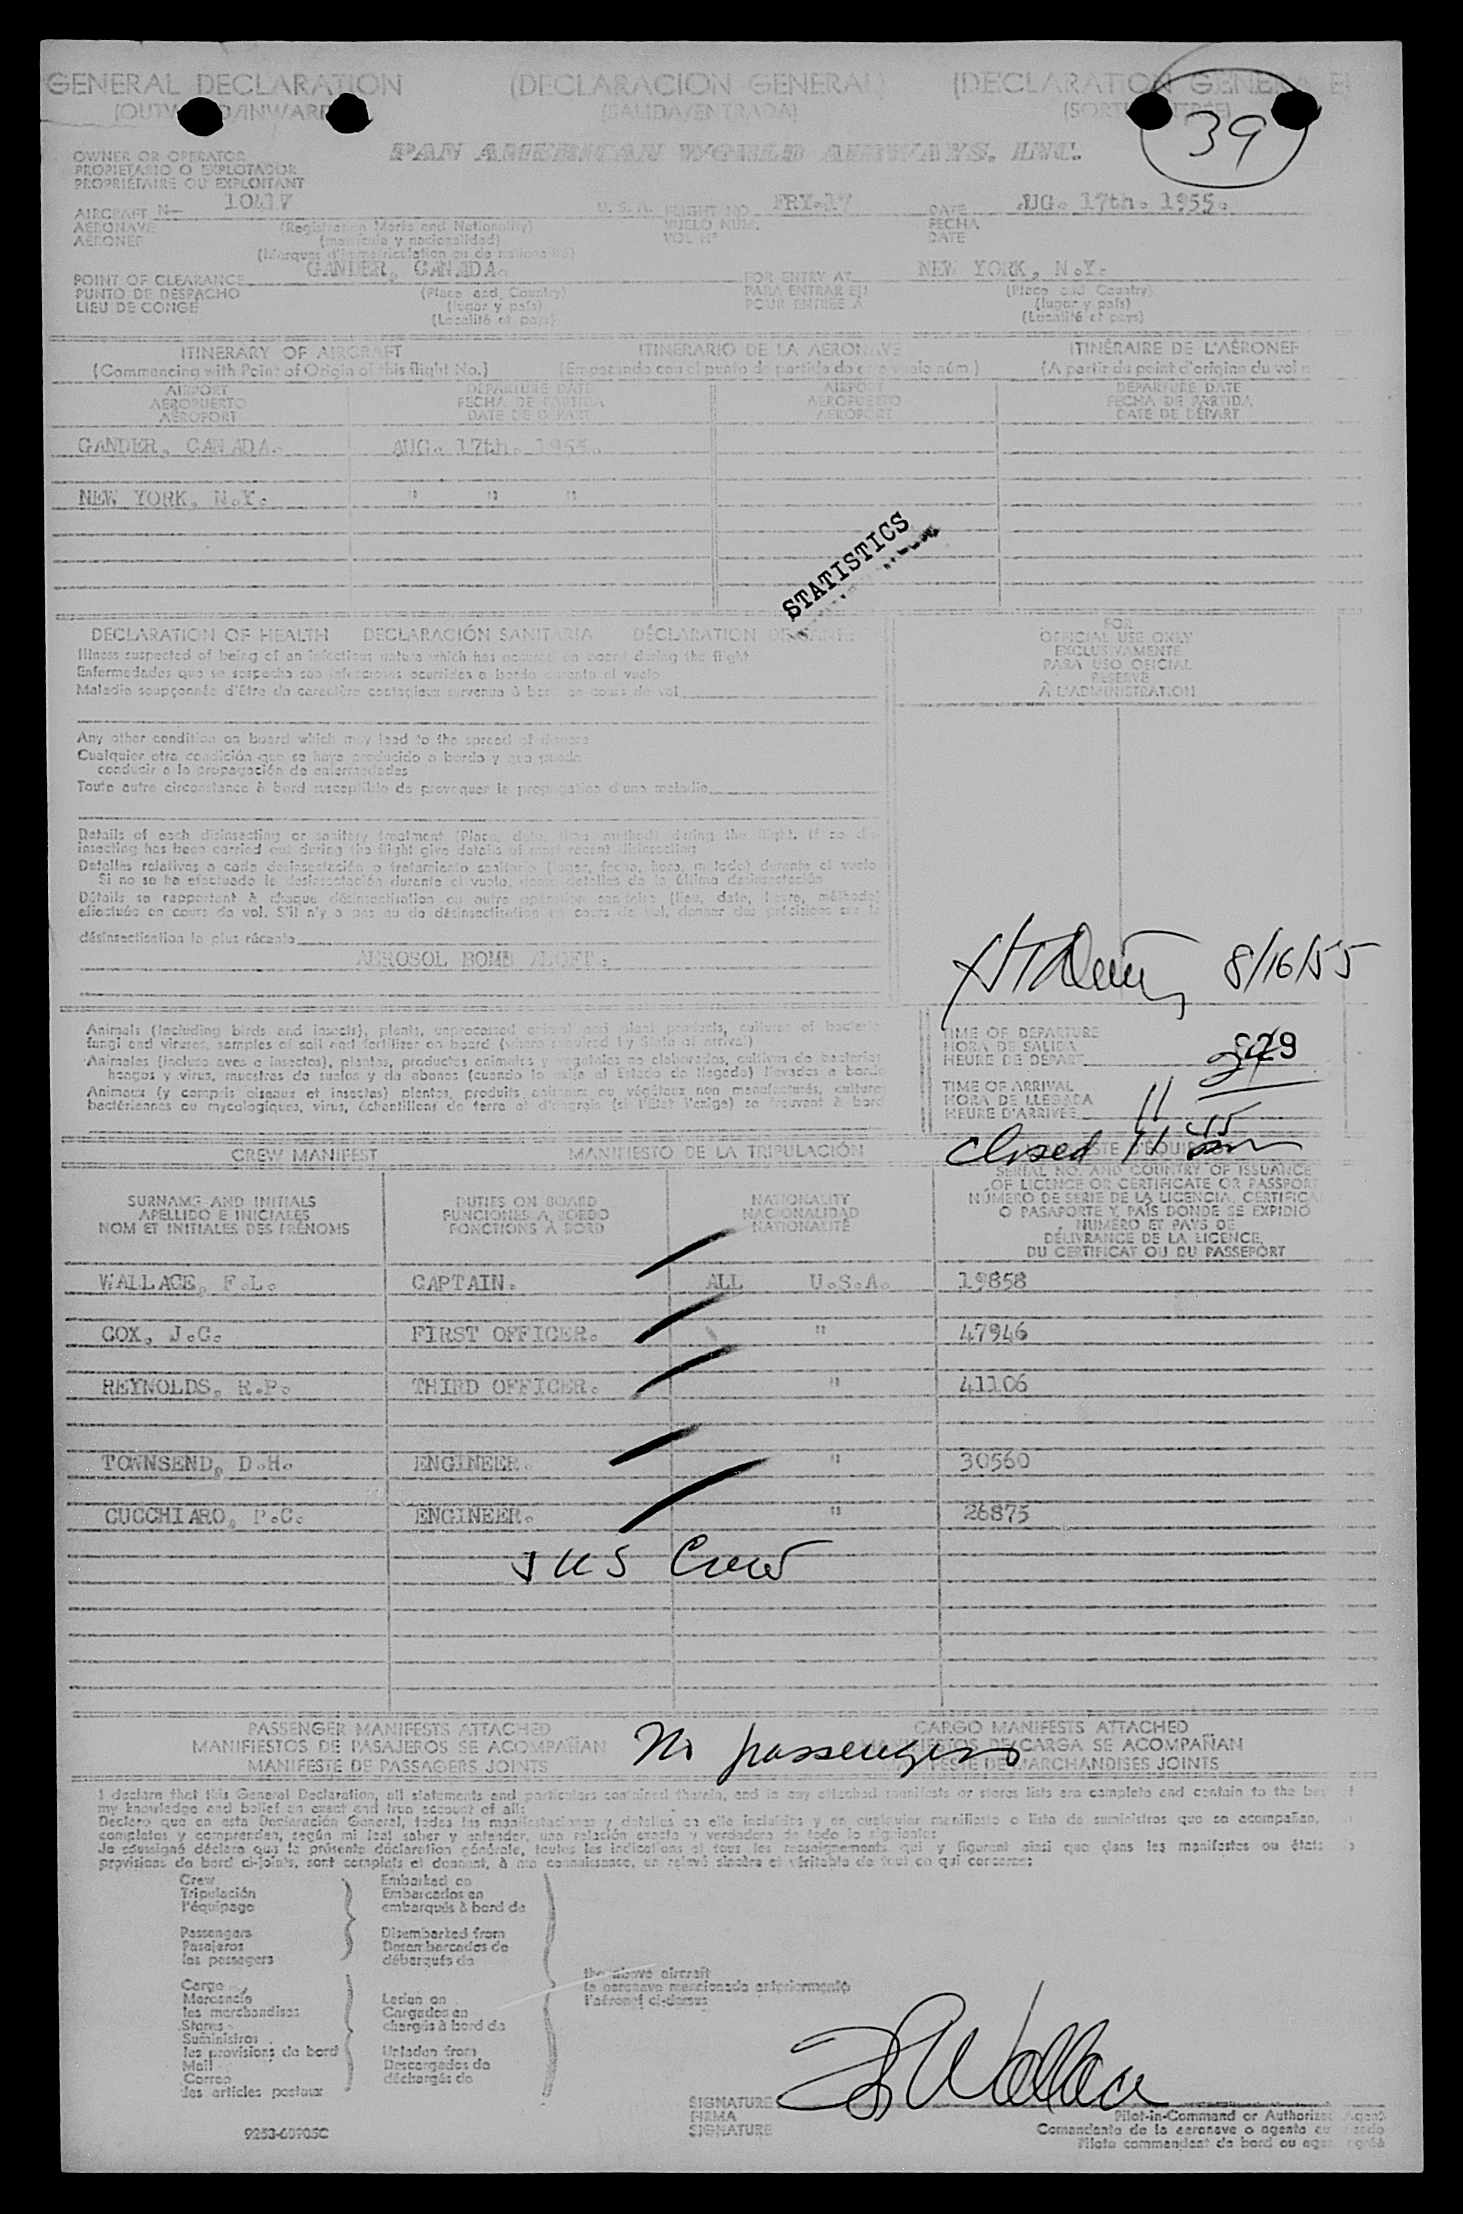 GENERAL DECLARATION (DECLARACION GENERAL) (DECLARATION GENERALE)
(SALIDA/ENTRADA)
39
OWNER OR OPERATOR
PROPIETARIO O EXPLOTADOR
PROPRIÉTAIRE OU EXPLOITANT
PAN AMERICAN WORLD AIRWAYS, INC.
AIRCRAFT N— 1041V U. S. A. FLIGHT NO. FRY-17 DATE AUG. 17th. 1955.
AERONAVE (Registration Marks and Nationality) VUELO NUM. FECHA
AÉRONEF (matrícula y nacionalidad) VOL Nº DATE
(Marques d'immatriculation ou de nationalité)
POINT OF CLEARANCE GANDER, CANADA. FOR ENTRY AT NEW YORK, N.Y.
PUNTO DE DESPACHO (Place and Country) PARA ENTRAR EN (Place and Country)
LIEU DE CONGÉ (lugar y país) POUR ENTRÉE A (lugar y país)
(Localité et pays) (Localité et pays)
ITINERARY OF AIRCRAFT ITINERARIO DE LA AERONAVE ITINÉRAIRE DE L'AÉRONEF
(Commencing with Point of Origin of this flight No.) (Empezando con el punto de partida de este vuelo núm.) (A partir du point d'origine du vol
AIRPORT DEPARTURE DATE AIRPORT DEPARTURE DATE
AEROPUERTO FECHA DE PARTIDA AEROPUERTO FECHA DE PARTIDA
AÉROPORT DATE DE DÉPART AÉROPORT DATE DE DÉPART
GANDER, CANADA. AUG. 17th. 1955.
NEW YORK, N.Y. " " "
STATISTICS
DECLARATION OF HEALTH DECLARACIÓN SANITARIA DÉCLARATION DE SANTE
Illness suspected of being of an infectious nature which has occurred on board during the flight
Enfermedades que se sospecha son infecciosas ocurridas a bordo durante el vuelo
Maladie soupçonnée d'être de caractère contagieux survenue à bord en cours de vol
FOR
OFFICIAL USE ONLY
EXCLUSIVAMENTE
PARA USO OFICIAL
RÉSERVÉ
À L'ADMINISTRATION
Any other condition on board which may lead to the spread of disease
Cualquier otra condición que se haya producido a bordo y que pueda
conducir a la propagación de enfermedades
Toute autre circonstance à bord susceptible de provoquer la propagation d'une maladie
Details of each disinsecting or sanitary treatment (Place, date, time, method) during the flight. If no dis-
insecting has been carried out during the flight give details of most recent disinsecting
Detalles relativos a cada desinsectación o tratamiento sanitario (lugar, fecha, hora, método) durante el vuelo
Si no se ha efectuado la desinsectación durante el vuelo, dense detalles de la última desinsectación
Détails se rapportant à chaque désinsectisation ou autre opération sanitaire (lieu, date, heure, méthode)
effectuée en cours de vol. S'il n'y a pas eu de désinsectisation en cours de vol, donner des précisions sur la
désinsectisation la plus récente
AEROSOL BOMB ALOFT.
8/16/55
Animals (including birds and insects), plants, unprocessed animal and plant products, cultures of bacteria
fungi and viruses, samples of soil and fertilizer on board (where required by State of arrival)
Animales (incluso aves e insectos), plantas, productos animales y vegetales no elaborados, cultivos de bacterias
hongos y virus, muestras de suelos y de abonos (cuando lo exija el Estado de llegada) llevados a bordo
Animaux (y compris oiseaux et insectes) plantes, produits animaux ou végétaux non manufacturés, cultures
bactériennes ou mycologiques, virus, échantillons de terre et d'engrais (si l'État l'exige) se trouvant à bord
TIME OF DEPARTURE
HORA DE SALIDA
HEURE DE DÉPART
TIME OF ARRIVAL
HORA DE LLEGADA
HEURE D'ARRIVÉE
closed 11 45
CREW MANIFEST MANIFIESTO DE LA TRIPULACIÓN
SURNAME AND INITIALS DUTIES ON BOARD NATIONALITY SERIAL NO. AND COUNTRY OF ISSUANCE
APELLIDO E INICIALES FUNCIONES A BORDO NACIONALIDAD OF LICENCE OR CERTIFICATE OR PASSPORT
NOM ET INITIALES DES PRÉNOMS FONCTIONS À BORD NATIONALITÉ NÚMERO DE SERIE DE LA LICENCIA, CERTIFICA
O PASAPORTE Y PAÍS DONDE SE EXPIDIÓ
NUMÉRO ET PAYS DE
DÉLIVRANCE DE LA LICENCE,
DU CERTIFICAT OU DU PASSEPORT
WALLACE, F.L. CAPTAIN. ALL U.S.A. 19858
COX, J.C. FIRST OFFICER. " 47946
REYNOLDS, R.P. THIRD OFFICER. " 41106
TOWNSEND, D.H. ENGINEER. " 30560
CUCCHIARO, P.C. ENGINEER. " 26875
5 US Crew
PASSENGER MANIFESTS ATTACHED CARGO MANIFESTS ATTACHED
MANIFIESTOS DE PASAJEROS SE ACOMPAÑAN No passengers MANIFIESTOS DE CARGA SE ACOMPAÑAN
MANIFESTE DE PASSAGERS JOINTS MANIFESTE DE MARCHANDISES JOINTS
I declare that this General Declaration, all statements and particulars contained therein, and in any attached manifests or stores lists are complete and contain to the best of
my knowledge and belief an exact and true account of all:
Declaro que en esta Declaración General, todas las manifestaciones y detalles en ella incluidos y en cualquier manifiesto o lista de suministros que se acompañan,
completos y comprenden, según mi leal saber y entender, una relación exacta y verdadera de todo lo siguiente:
Je soussigné déclare que la présente déclaration générale, toutes les indications et tous les renseignements qui y figurent ainsi que dans les manifestes ou états
provisions de bord ci-joints, sont complets et donnent, à ma connaissance, un relevé sincère et véritable de tout ce qui concerne:
Crew Embarked on
Tripulación Embarcados en
l'équipage embarqués à bord de
Passengers Disembarked from
Pasajeros Desembarcados de
les passagers débarqués de
the above aircraft
la aeronave mencionada anteriormente
l'aéronef ci-dessus
Cargo
Mercancía Laden on
les marchandises Cargados en
Stores chargés à bord de
Suministros
les provisions de bord Unladen from
Mail Descargados de
Correo déchargés de
les articles postaux
SIGNATURE F L Wallace
FIRMA Pilot-in-Command or Authorized Agent
SIGNATURE Comandante de la aeronave o agente
Pilote commandant de bord ou agent agréé
9253-60905C